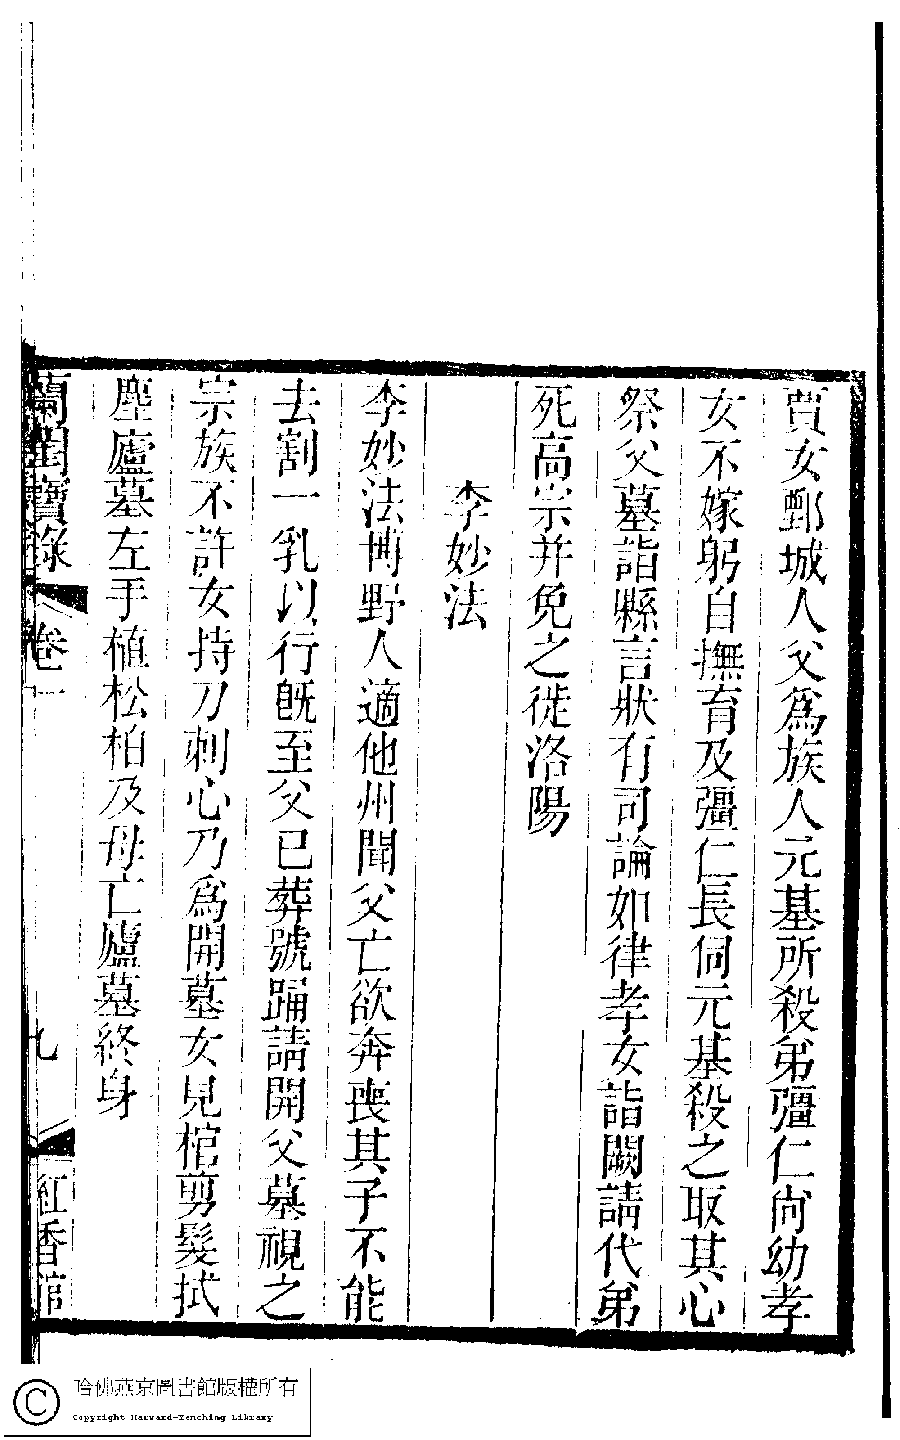 賈女鄄城人父爲族人元基所殺弟彊仁尚幼孝
女不嫁躬自撫育及彊仁長伺元基殺之取其心
祭父墓詣縣言狀有司論如律孝女詣闕請代弟
死高宗并免之徙洛陽
李妙法
李妙法博野人適他州聞父亡欲奔喪其子不能
去割一乳以行旣至父已葬號踊請開父墓視之
宗族不許女持刀刺心乃爲開墓女見棺剪髮拭
塵廬墓左手植松柏及母亡廬墓終身
蘭閨寶錄 卷一 九 紅香館
哈佛燕京圖書館版權所有
Copyright Harvard-Yenching Library